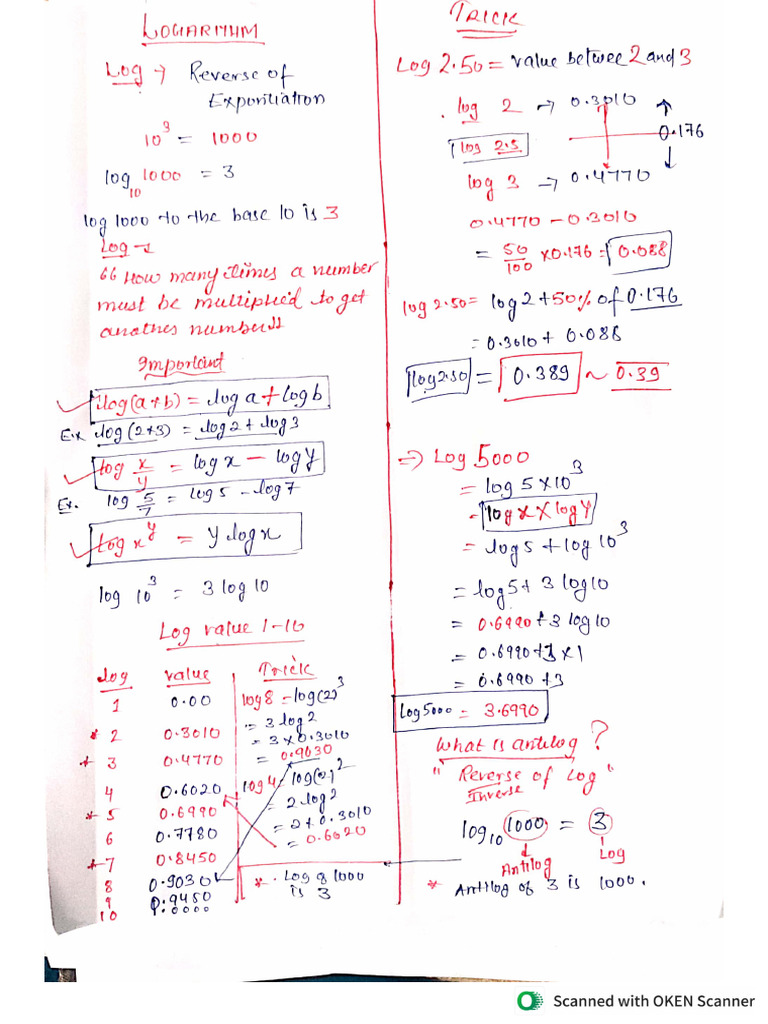 LOGARITHM
Log → Reverse of
Exponitiation
10³ = 1000
log₁₀ 1000 = 3
log 1000 to the base 10 is 3
Log →
"How many times a number
must be multiplied to get
another number"
Important
log(a+b) = log a + log b
Ex log(2+3) = log2 + log3
log x/y = log x - log y
Ex. log 5/7 = log 5 - log 7
log x^y = y log x
log 10³ = 3 log 10
Log value 1-10
log value Trick
1 0.00
* 2 0.3010
* 3 0.4770
4 0.6020
* 5 0.6990
6 0.7780
* 7 0.8450
8 0.9030
9 0.9450
10
log 8 = log(2)³
= 3 log 2
= 3 × 0.3010
= 0.9030
log 4 = log(2)²
= 2 log 2
= 2 + 0.3010
= 0.6020
* . Log 8 1000
is 3
TRICK
Log 2.50 = value betwee 2 and 3
. log 2 → 0.3010
log 2.5
0.176
log 3 → 0.4770
0.4770 - 0.3010
= 50/100 × 0.176 = 0.088
log 2.50 = log 2 + 50% of 0.176
= 0.3010 + 0.088
log 2.50 = 0.389 ~ 0.39
⇒ Log 5000
= log 5 × 10³
= log X X log Y
= log 5 + log 10³
= log 5 + 3 log 10
= 0.6990 + 3 log 10
= 0.6990 + 3 × 1
= 0.6990 + 3
Log 5000 = 3.6990
What is antilog?
"Reverse of Log"
Inverse
log₁₀ 1000 = 3
Antilog Log
* Antilog of 3 is 1000.
Scanned with OKEN Scanner